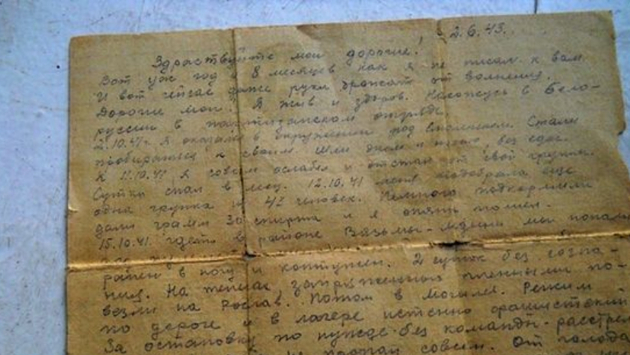 2.6.43.
Здравствуйте мои дорогие!
Вот уж год и 8 месяцев как я не писал к вам.
И вот сейчас даже руки дрожат от волнения.
Дорогие мои! Я жив и здоров. Нахожусь в Бело-
руссии в партизанском отряде.
2.10.41 я оказался в окружении под Вязьмой. Стали
пробираться к своим. Шли днем и ночью, без еды.
К 11.10.41 я совсем ослабел и отстал от своей группы.
Сутки спал в лесу. 12.10.41 меня подобрала еще
одна группа в 42 человек. Немного подкормили
дали грамм 30 спирта и я опять пошел.
15.10.41 где-то в районе Вязьмы мы попали
ранен в ногу и контужен. 2 суток без созна-
ния. На телегах запряженных пленными по-
везли на Рослав. Потом в Могилев. Режим
по дороге и в лагере истенно фашистский
За остановку по нужде без команды - расстрел
не пропал совсем. От голода